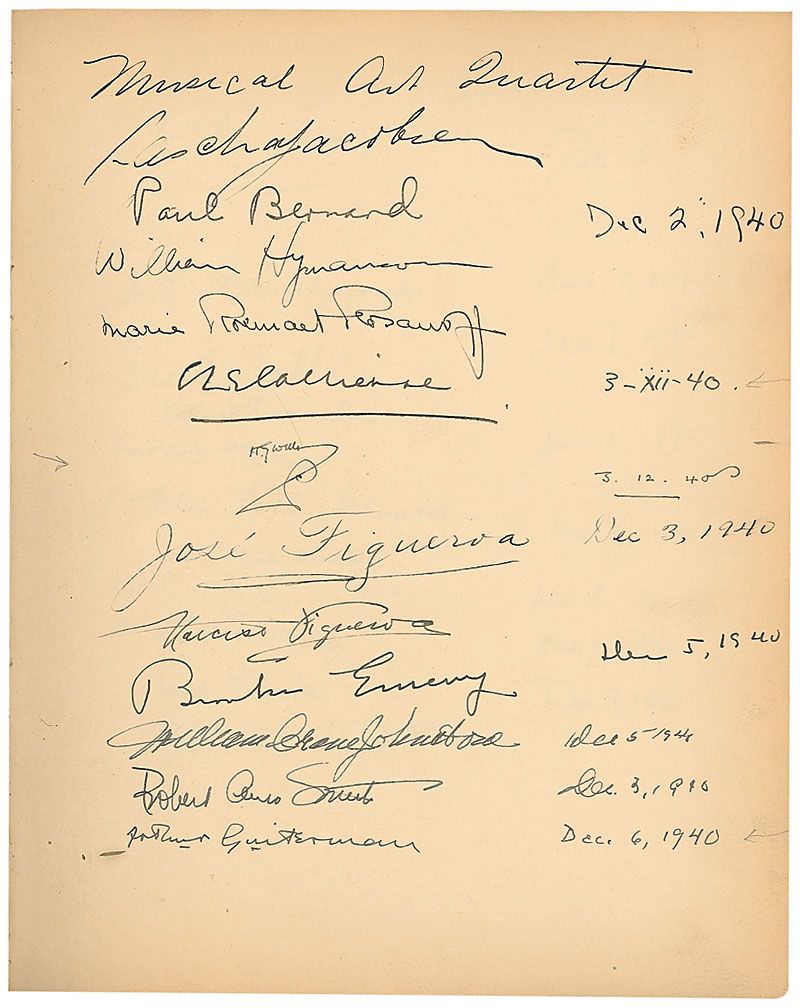 Musical Art Quartet
Sascha Jacobsen
Paul Bernard Dec 2, 1940
William Hymanson
Marie Roemaet Rosanoff
3-XII-40.
3. 12. 40
José Figueroa Dec 3, 1940
Narciso Figueroa
Emery Dec 5, 1940
William Johnstone Dec 5 1940
Robert Dec. 3, 1940
Arthur Guiterman Dec. 6, 1940